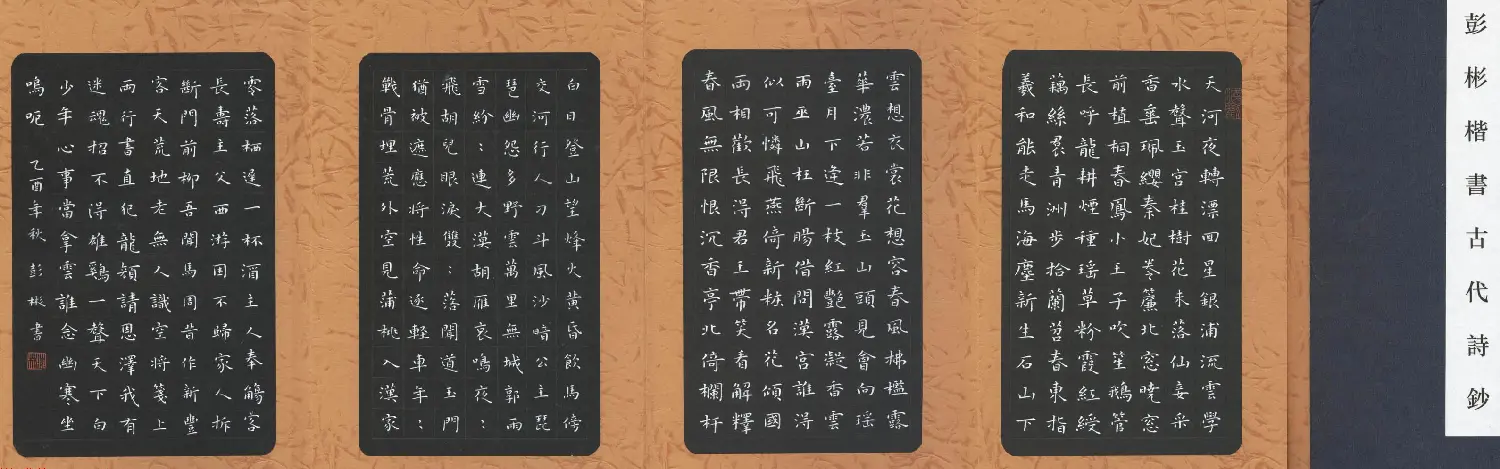 彭彬楷書古代詩鈔
天河夜轉漂回星銀浦流雲學
水聲玉宮桂樹花未落仙妾采
香垂珮纓秦妃卷簾北窓曉窓
前植桐春鳳小王子吹笙鵝管
長呼龍耕煙種瑶草粉霞紅綬
藕絲裠青洲步拾蘭苕春東指
羲和能走馬海塵新生石山下
雲想衣裳花想容春風拂檻露
華濃若非羣玉山頭見會向瑶
臺月下逢一枝紅艷露凝香雲
雨巫山枉斷腸借問漢宮誰得
似可憐飛燕倚新粧名花傾國
兩相歡長得君王帶笑看解釋
春風無限恨沉香亭北倚欄杆
白日登山望烽火黃昏飲馬傍
交河行人刁斗風沙暗公主琵
琶幽怨多野雲萬里無城郭雨
雪紛:連大漠胡雁哀鳴夜:
飛胡兒眼淚雙:落聞道玉門
猶被遮應將性命逐輕車年:
戰骨埋荒外空見蒲桃入漢家
零落栖遲一杯酒主人奉觴客
長壽主父西游困不歸家人折
斷門前柳吾聞馬周昔作新豐
客天荒地老無人識空將箋上
兩行書直犯龍顏請恩澤我有
迷魂招不得雄鷄一聲天下白
少年心事當拿雲誰念幽寒坐
嗚呃 乙酉年秋 彭彬書